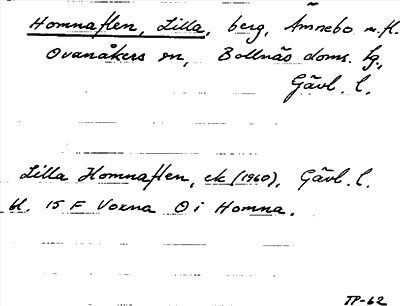 Homnaflen, Lilla, berg, Ämnebo m.fl.
Ovanåkers sn, Bollnäs doms. tg,
Gävl. l.
Lilla Homnaflen, ek (1960), Gävl. l.
bl. 15 F Voxna O i Homna.
TP-62